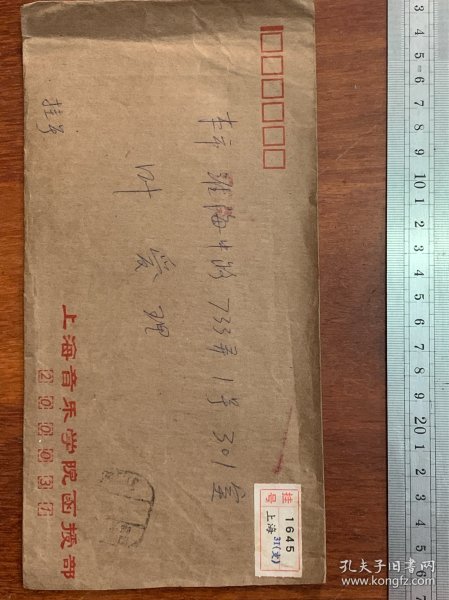 挂号
本市 淮海中路 733弄 1号 301室
叶爱
上海音乐学院函授部
200031
挂号
1645
上海 31(支)
3 4 5 6 7 8 9 10 1 2 3 4 5 6 7 8 9 20 1 2 3 4 5 6 7
孔夫子旧书网
www.kongfz.com